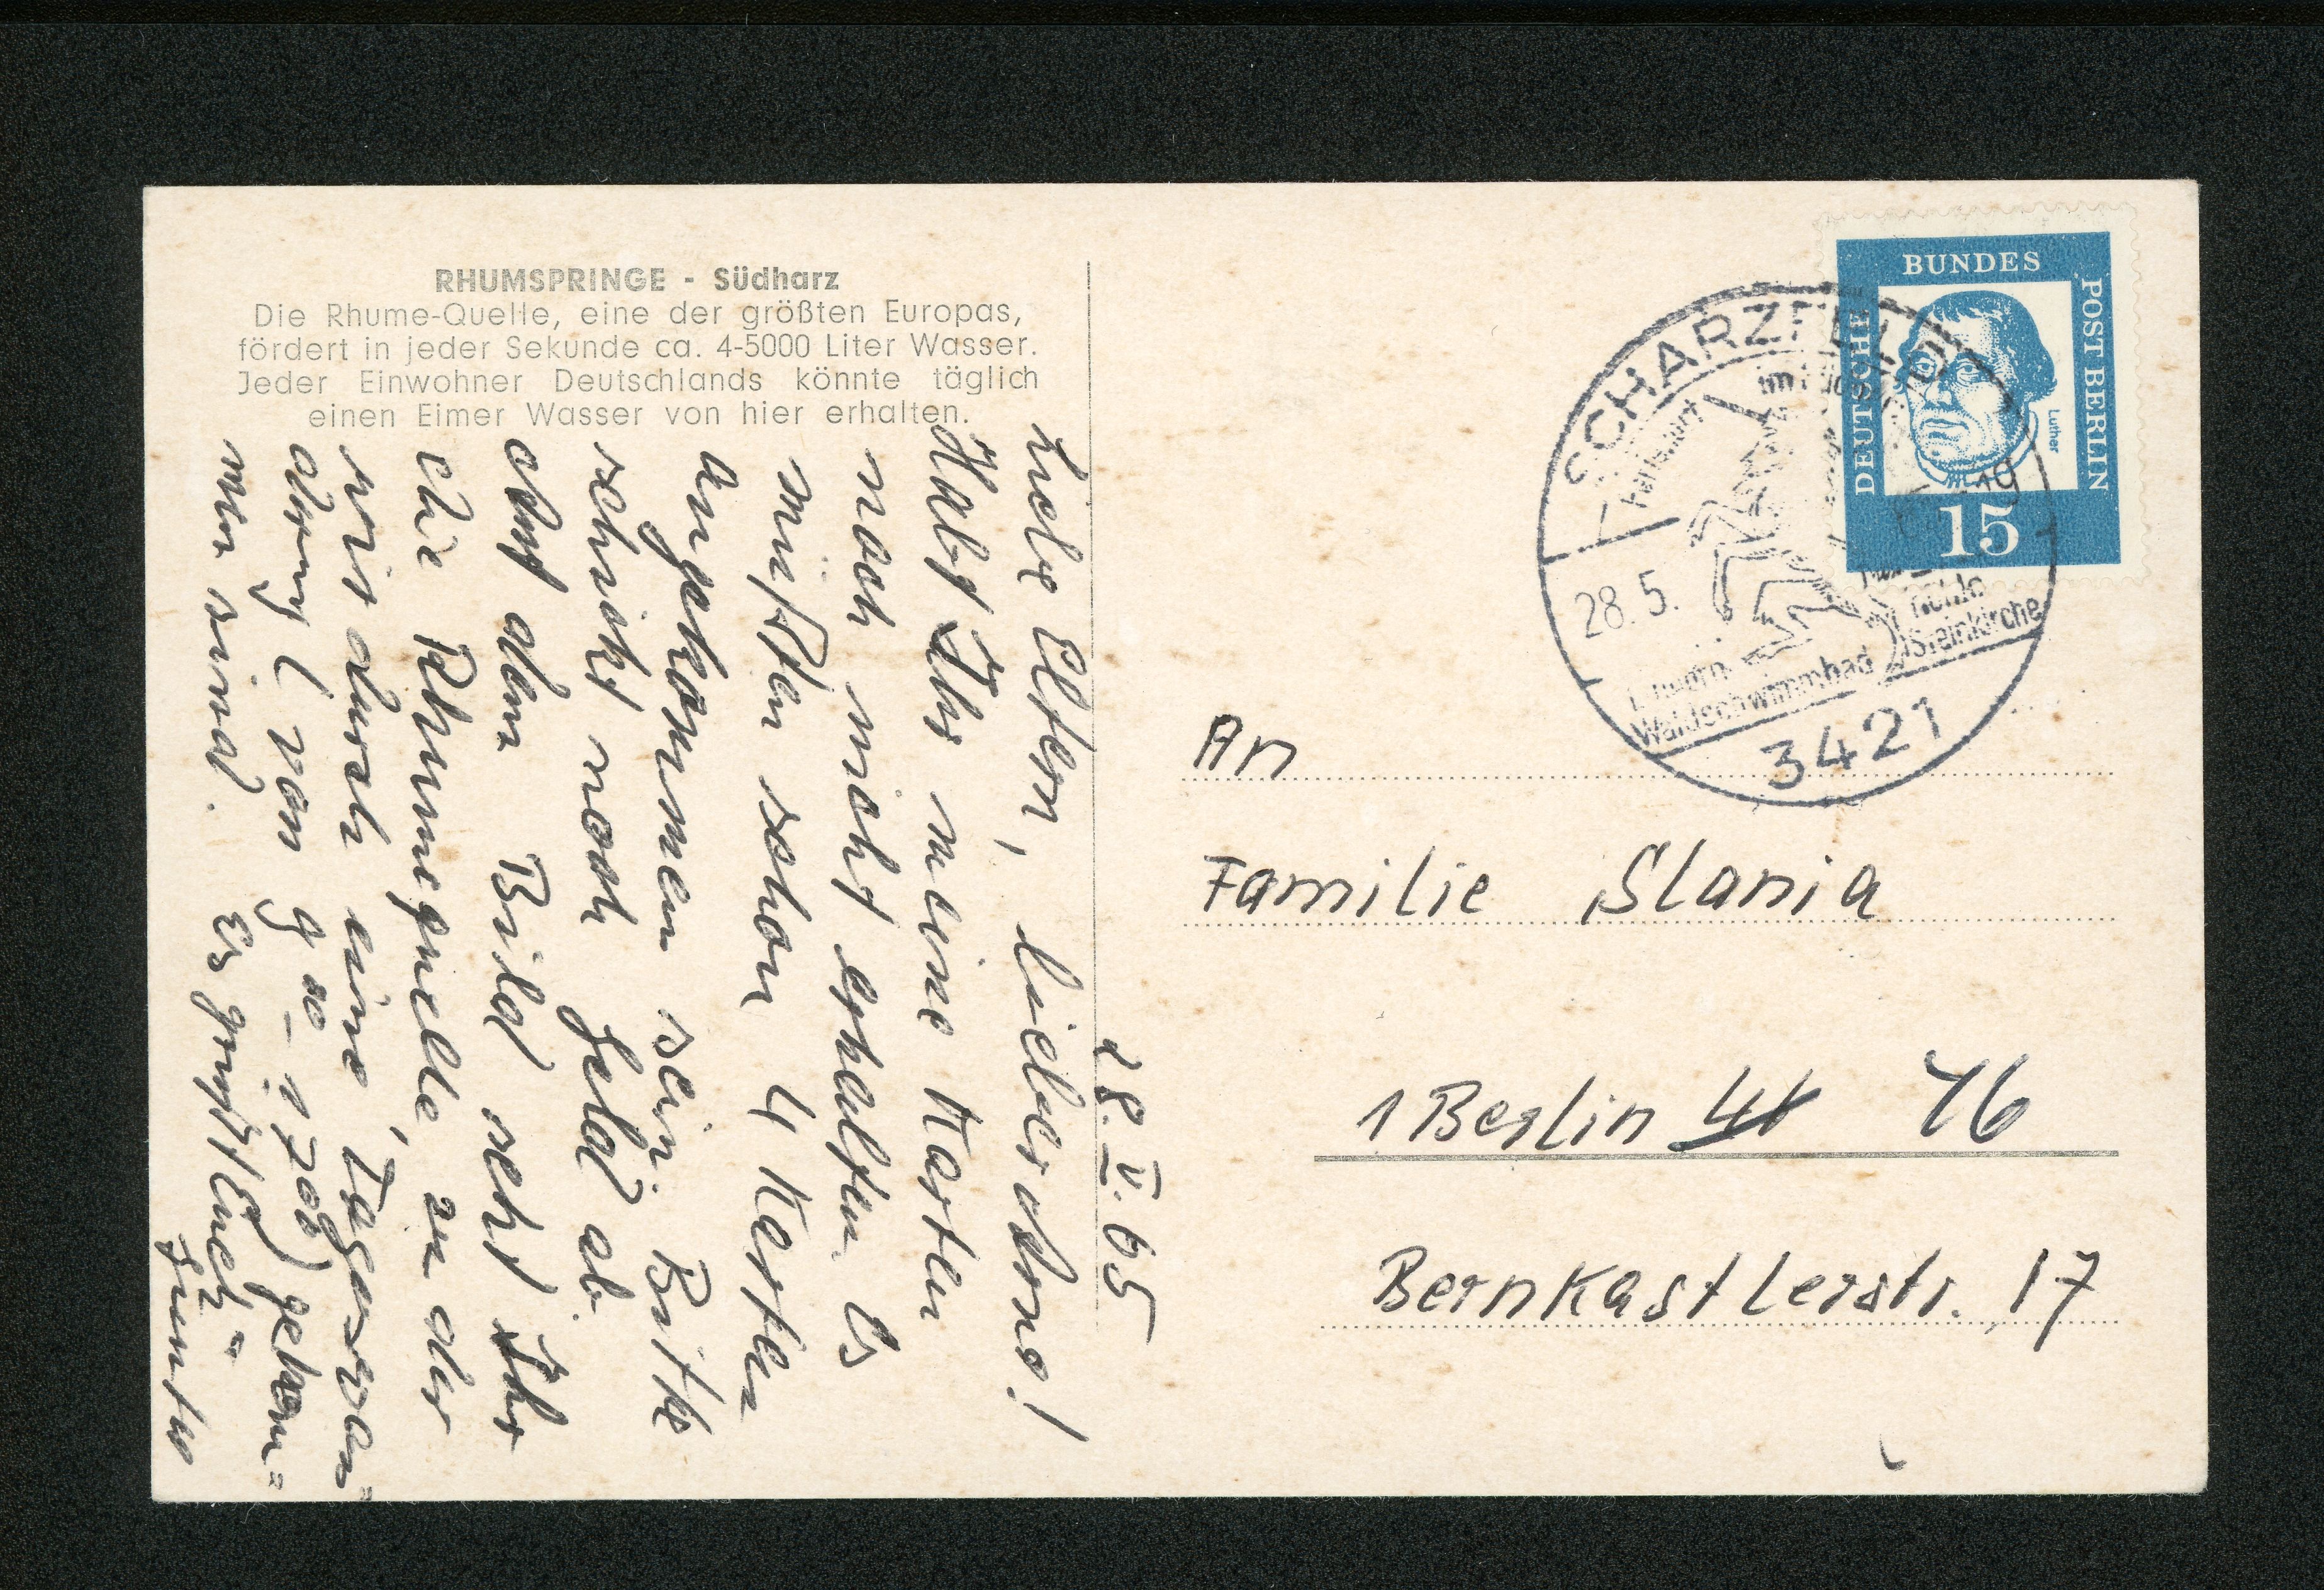 RHUMSPRINGE - Südharz
Die Rhume-Quelle, eine der größten Europas,
fördert in jeder Sekunde ca. 4-5000 Liter Wasser.
Jeder Einwohner Deutschlands könnte täglich
einen Eimer Wasser von hier erhalten.
28. V. 65
Liebe Eltern, lieber Arno!
Habt Ihr meine Karten
noch nicht erhalten. Es
müßten schon 4 Karten
angekommen sein. Bitte
schickt noch Geld ab.
Auf dem Bild seht Ihr
die Rhumequelle, zu der
wir durch eine Tageswan=
derung (von 9 00 - 1700) gekom=
men sind. Es grüßt Euch
DEUTSCHE BUNDES POST BERLIN
Luther
15
SCHARZFELD
28.5.
Waldschwimmbad
Steinkirche
3421
An
Familie Slania
1 Berlin 41 46
Bernkastlerstr. 17